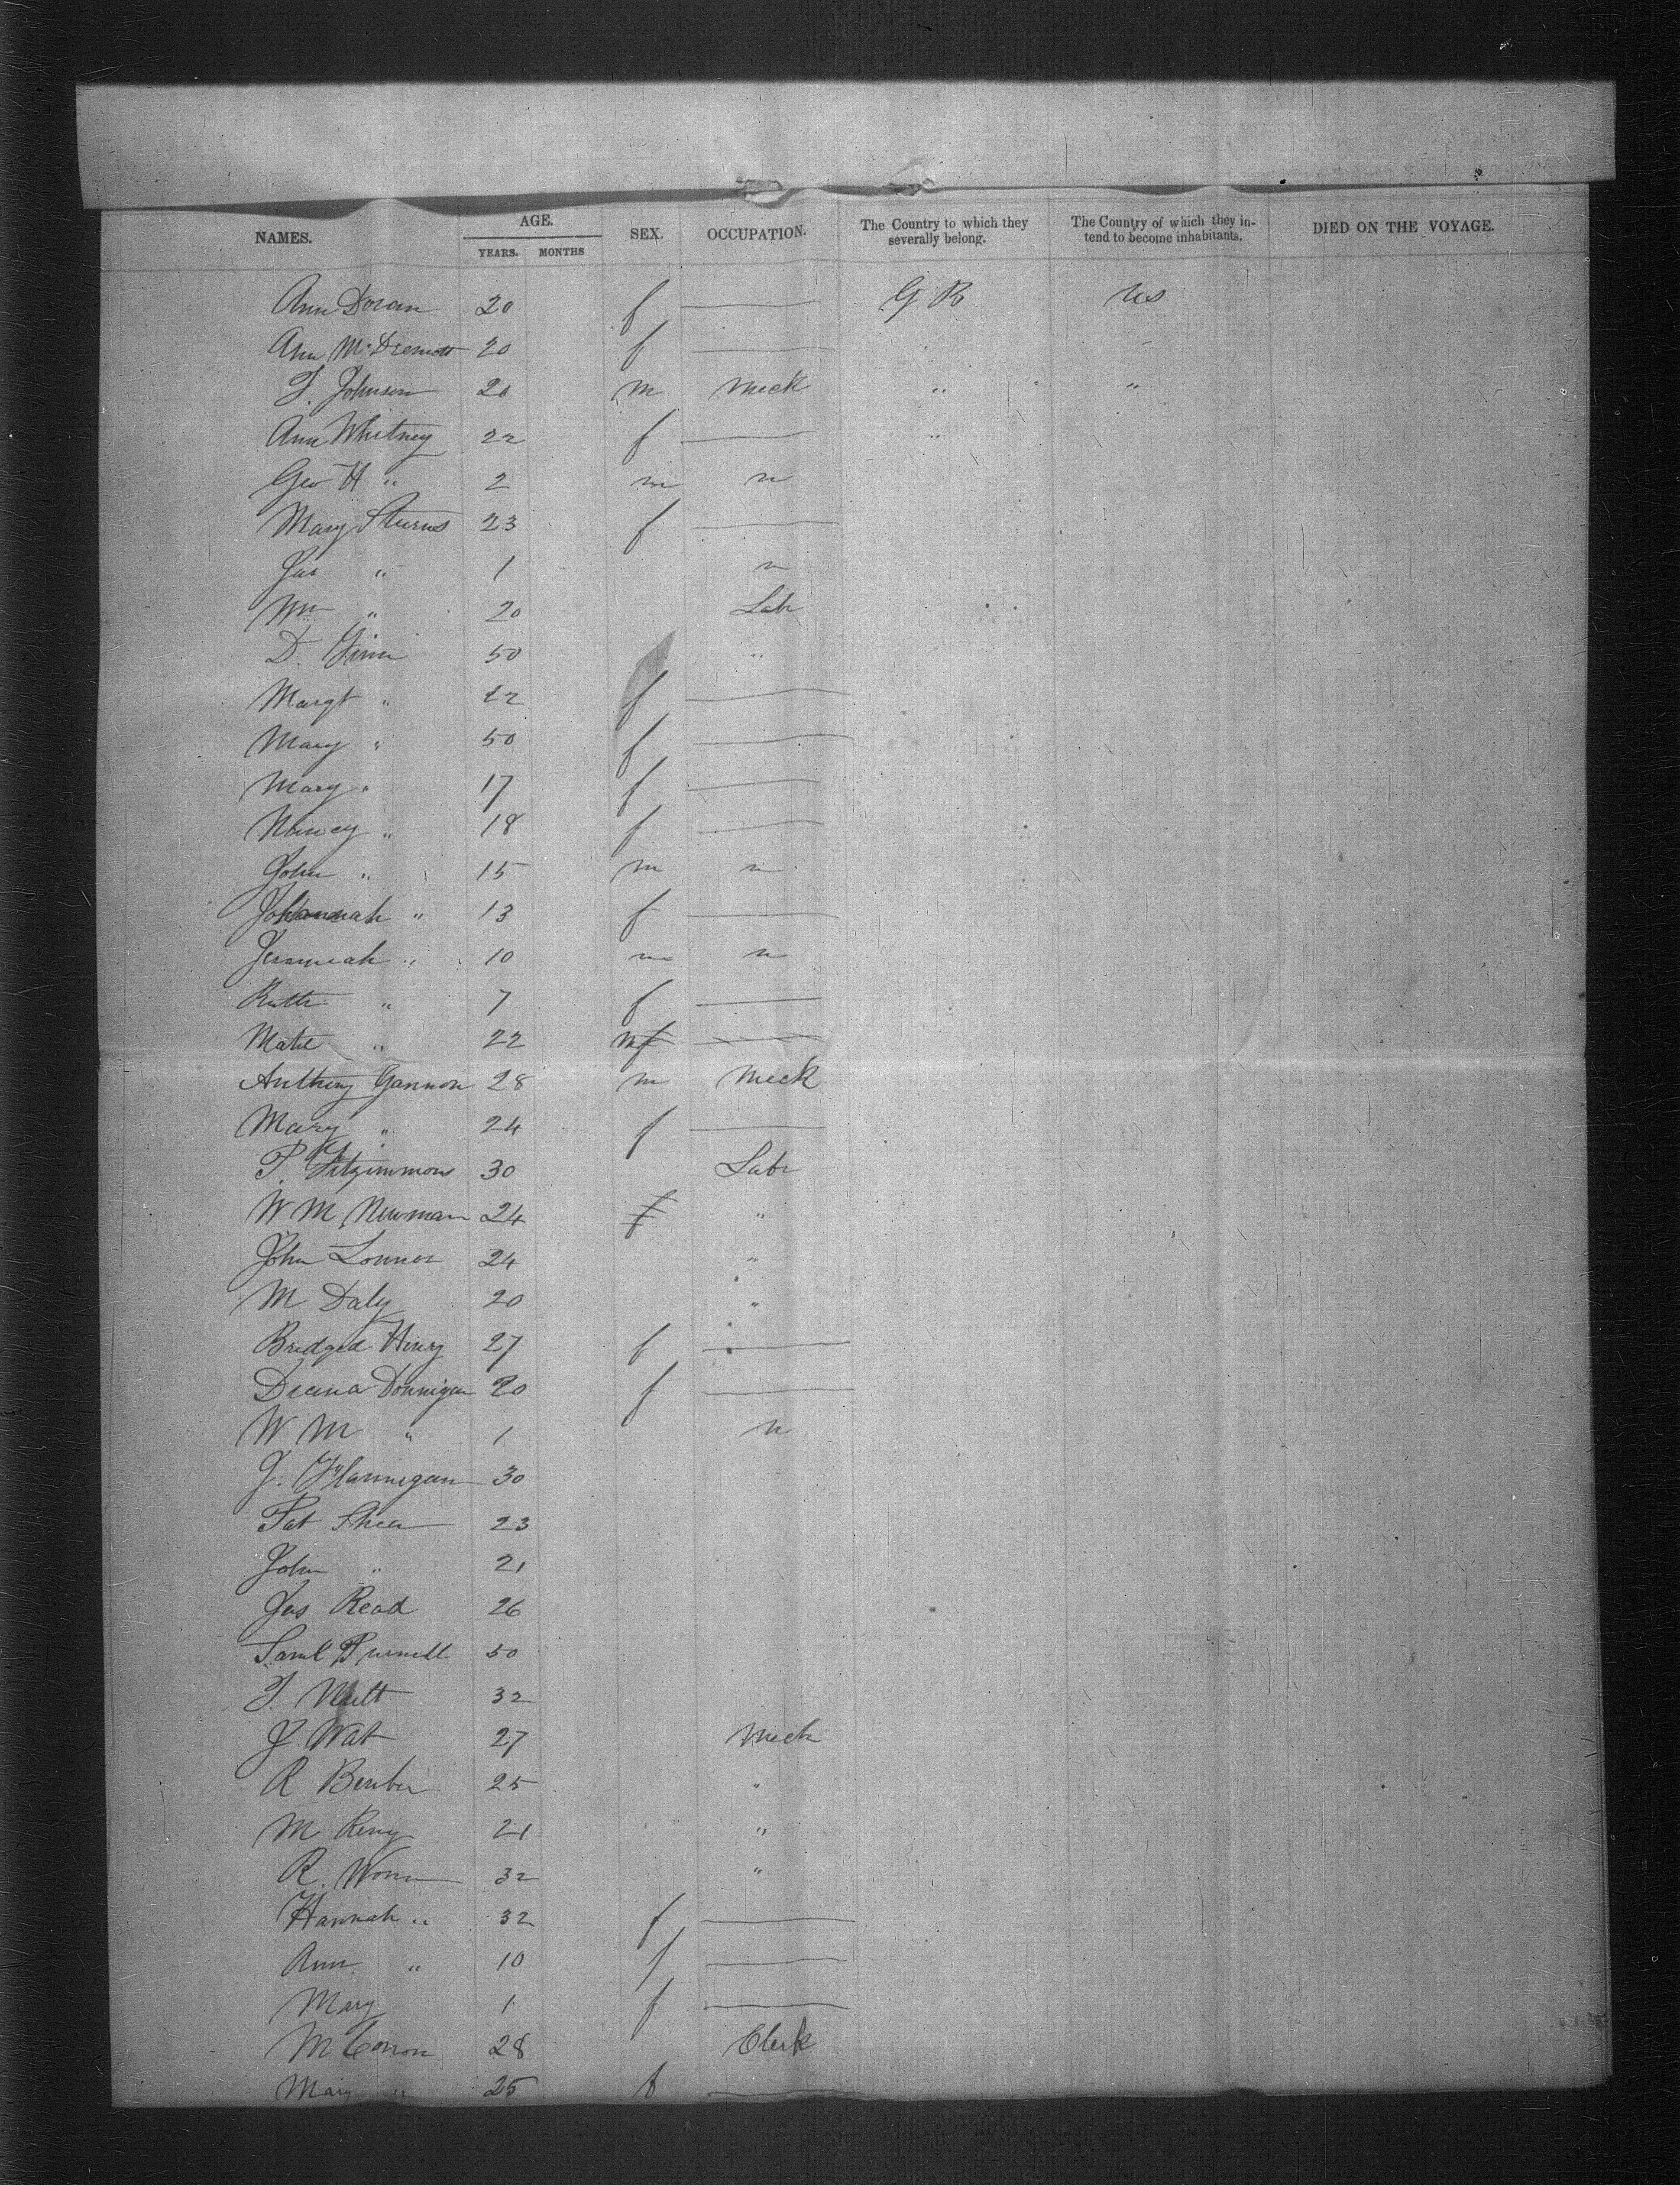 NAMES. AGE. YEARS. MONTHS SEX. OCCUPATION. The Country to which they severally belong. The Country of which they intend to become inhabitants. DIED ON THE VOYAGE.
Ann Doran 20 f — G B US
Ann McDremott 20 f — "
F. Johnson 20 m Meck " "
Ann Whitney 22 f — "
Geo H " 2 m n
Mary Sturns 23 f —
Jas " 1 n
Wm " 20 Labr
D. Finn 50 "
Margt " 22 f —
Mary " 50 f —
Mary " 17 f —
Nancy " 18 f —
John " 15 m n
Johannah " 13 f —
Jeremiah " 10 m n
Ruth " 7 f —
" 22
Anthony Gannon 28 m Meck
Mary " 24 f —
P. Fitzimmons 30 Labr
W M Newman 24 f "
John Connor 24 "
M Daly 20 "
Bridged Henry 27 f —
Donnigan 20 f —
W M " 1 n
J. Flannigan 30
Pat Shea 23
John " 21
Jas Read 26
Saml 50
32
J Wat 27 Meck
R 25 "
M 21 "
R. 32 "
Hannah " 32 f —
Ann " 10 f —
Mary 1 f —
M Conon 28 Clerk
Mary " 25 f —